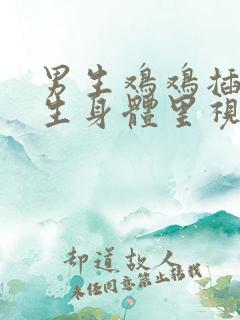 男生鸡鸡插
生身體里視
却道故人
未经同意禁止转载